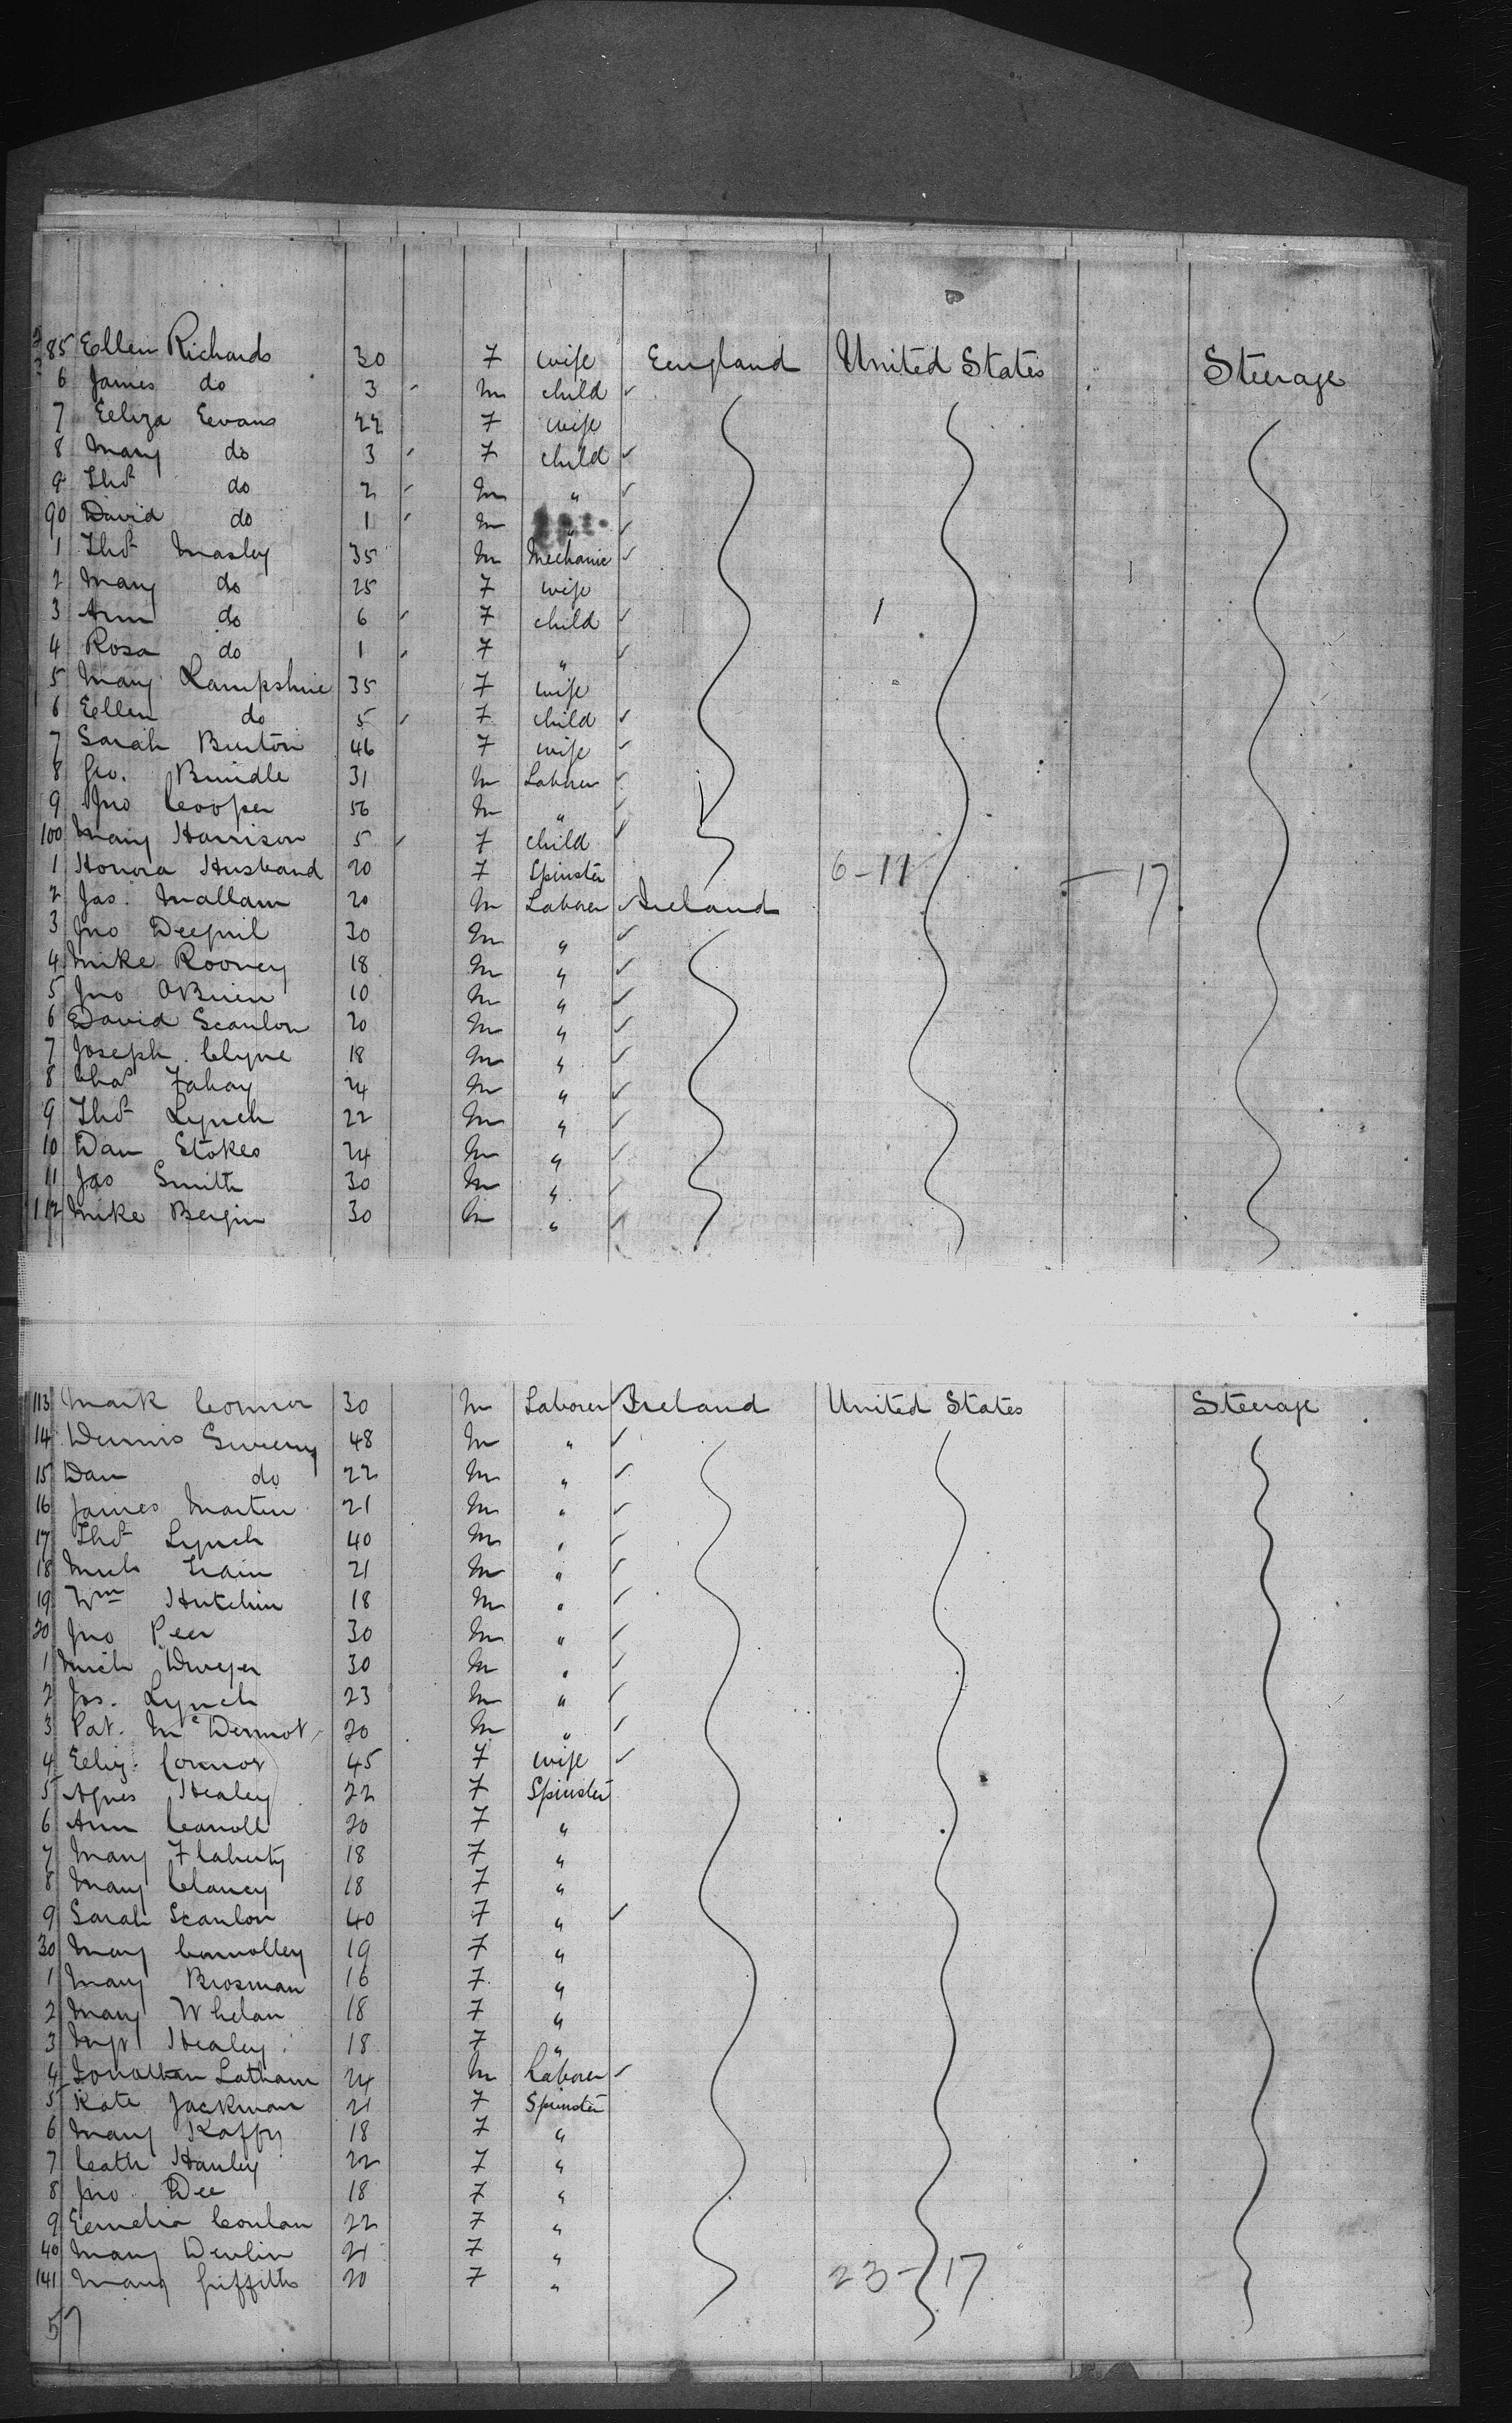 85 Ellen Richards 30 F wife England United States Steerage
6 James do 3 m child
7 Eeliza Eevans 22 F wife
8 Mary do 3 F child
9 Thos do 2 m "
90 David do 1 m "
1 Thos Masley 35 m Mechanic
2 Mary do 25 F wife
3 Ann do 6 F child
4 Rosa do 1 F "
5 Mary Lampshire 35 F wife
6 Eellen do 5 F child
7 Sarah Burton 46 F wife
8 Geo. Brindle 31 m Laborer
9 Jno Cooper 56 m "
100 Mary Harrison 5 F child
1 Honora Husband 20 F Spinster 6-11 - 17
2 Jas. Mallam 20 m Laborer Ireland
3 Jno 30 m "
4 Mike Rooney 18 m "
5 Jno OBrien 10 m "
6 David Scanlon 20 m "
7 Joseph Clyne 18 m "
8 Chas Fahay 24 m "
9 Thos Lynch 22 m "
10 Dan Stokes 24 m "
11 Jas Smith 30 m "
112 Mike Bergin 30 m "
113 Mark Connor 30 m Laborer Ireland United States Steerage
14 Dennis Sweeny 48 m "
15 Dan do 22 m "
16 James Martin 21 m "
17 Thos Lynch 40 m "
18 Mich 21 m "
19 Wm Hutchin 18 m "
20 Jno Peer 30 m "
1 Mich Dwyer 30 m "
2 Jas. Lynch 23 m "
3 Pat. McDermot 20 m "
4 Eeliz. Connor 45 F wife
5 Agnes Healey 22 F Spinster
6 Ann Carroll 20 F "
7 Mary Flaherty 18 F "
8 Mary Clancy 18 F "
9 Sarah Scanlon 40 F "
30 Mary Connolley 19 F "
1 Mary Brosman 16 F "
2 Mary Whelan 18 F "
3 Mgt Healey 18 F "
4 Jonathan Latham 24 m Laborer
5 Kate Jackman 21 F Spinster
6 Mary 18 F "
7 Cath Hanley 22 F "
8 Jno Dee 18 F "
9 Eemelia Conlan 22 F "
40 Mary Devlin 21 F "
141 Mary Griffiths 20 F " 23-17
57